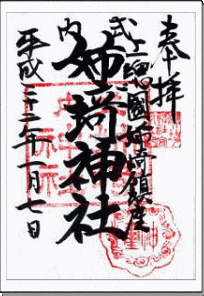 奉拝
式内
上総國姉埼鎮座
姉埼神社
平成二十二年一月七日